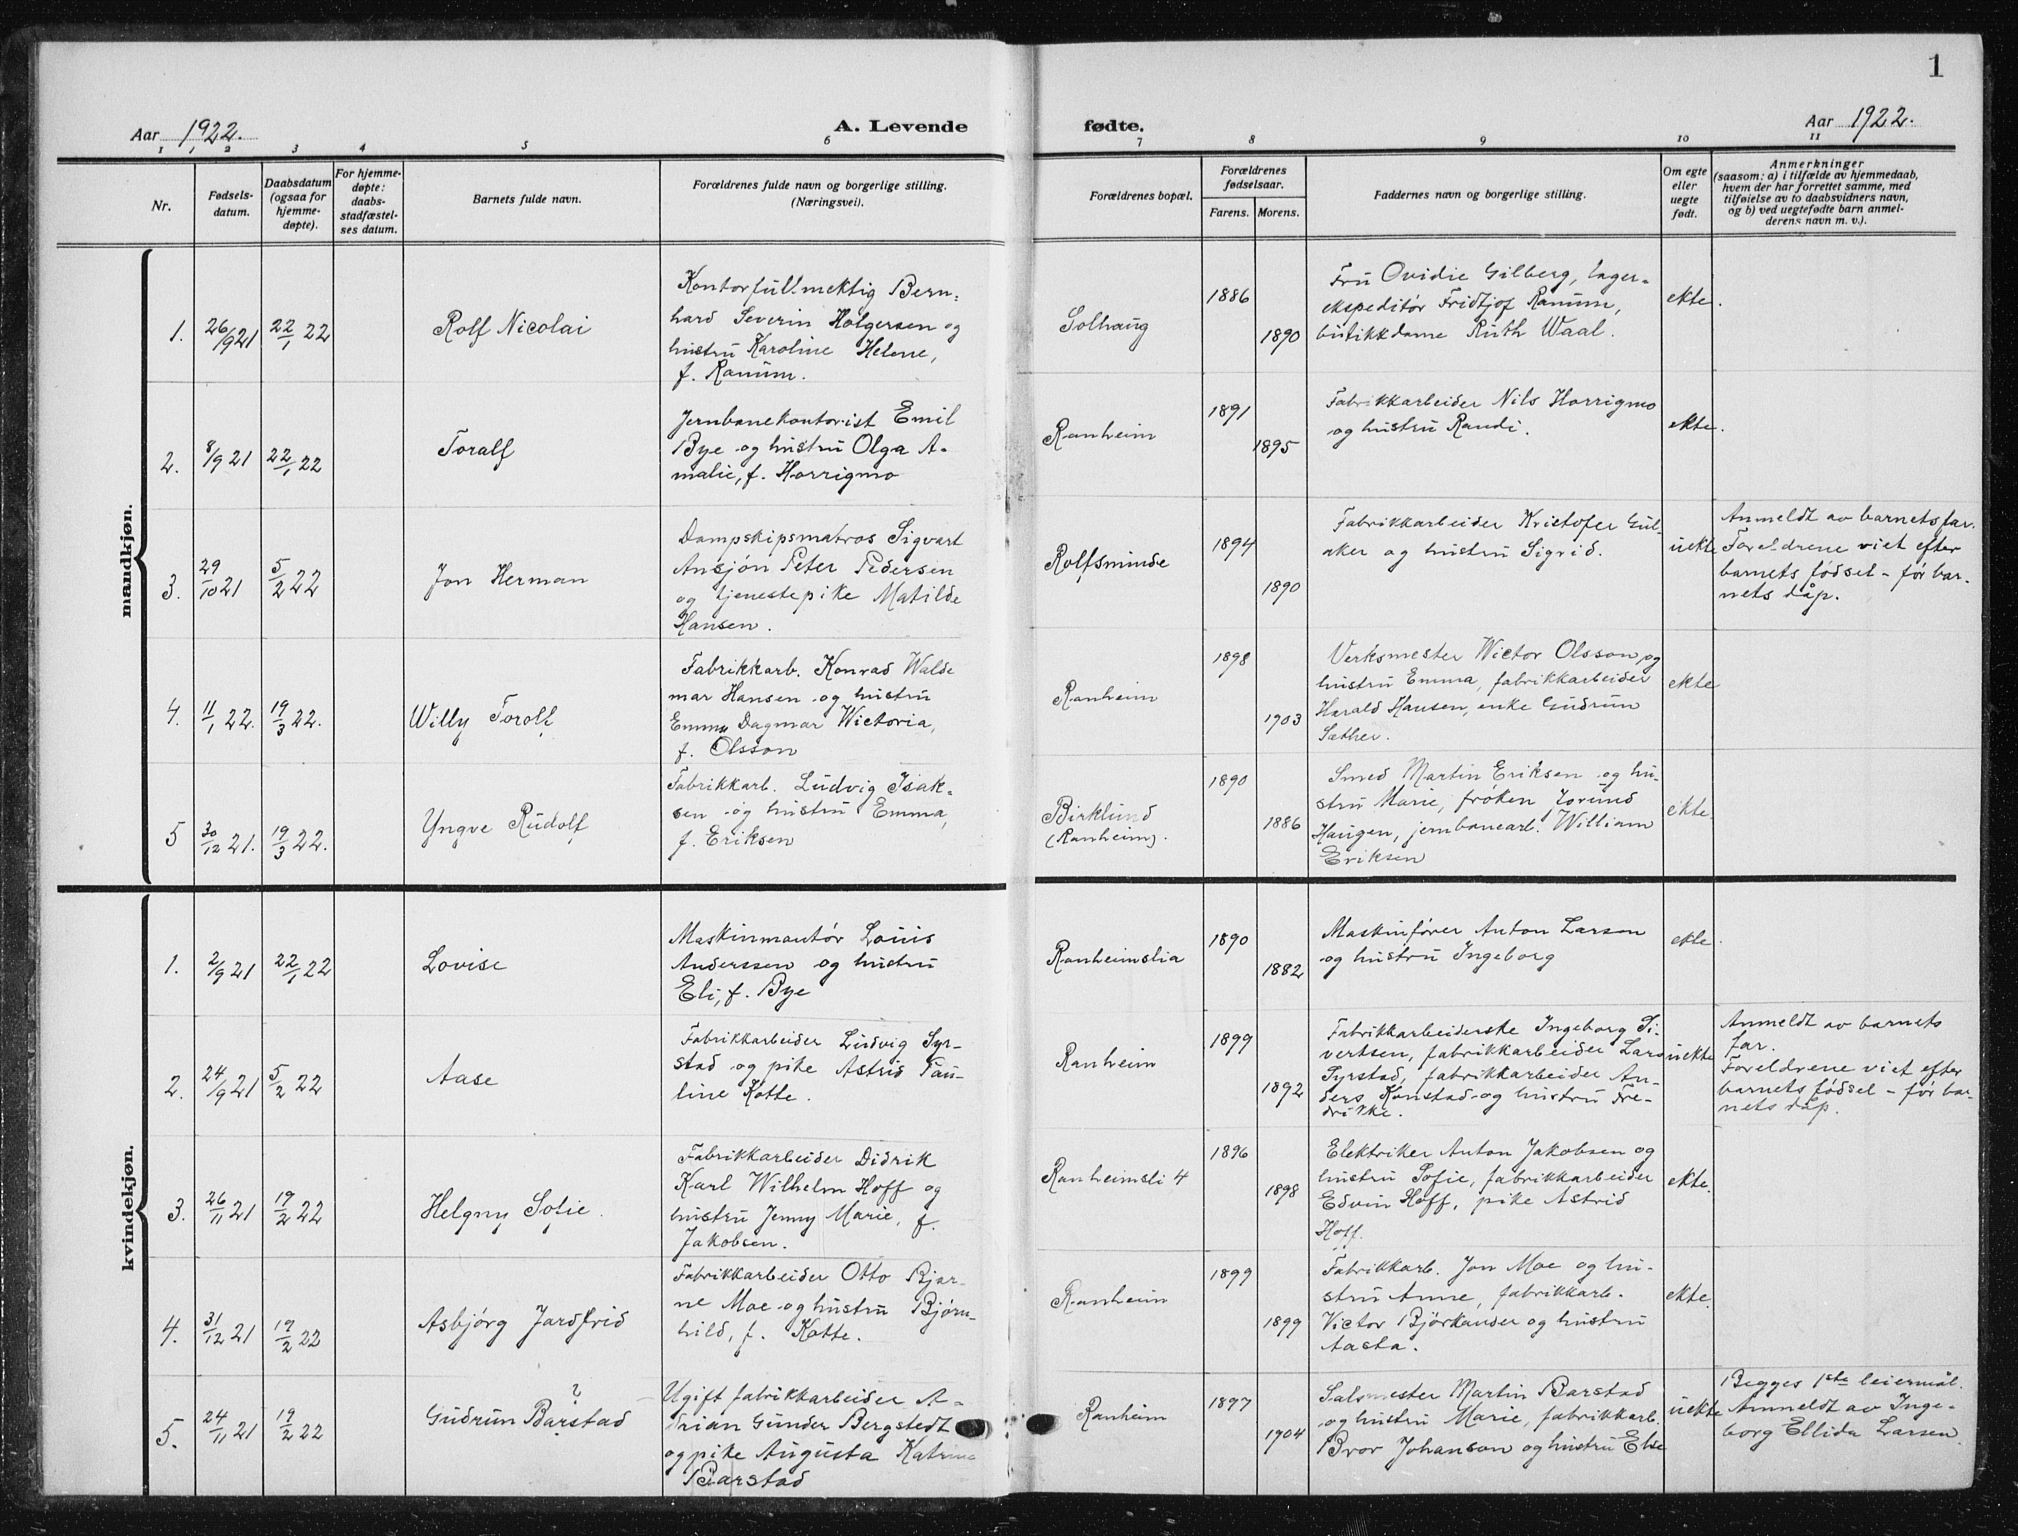 1
Aar 1922.
A. Levende
fødte.
Aar 1922.
1 2 3 4 5 6 7 8 9 10 11
Nr.
Fødsels-
datum.
Daabsdatum
(ogsaa for
hjemme-
døpte).
For hjemme-
døpte:
daabs-
stadfæstel-
ses datum.
Barnets fulde navn.
Forældrenes fulde navn og borgerlige stilling.
(Næringsvei).
Forældrenes bopæl.
Forældrenes
fødselsaar.
Farens. Morens.
Faddernes navn og borgerlige stilling.
Om egte
eller
uegte
født.
Anmerkninger
(saasom: a) i tilfælde av hjemmedaab,
hvem der har forrettet samme, med
tilføielse av to daabsvidners navn,
og b) ved uegtefødte barn anmel-
derens navn m. v.).
mandkjøn.
1. 26/9 21 22/1 22
Rolf Nicolai
Kontorfullmektig Bern-
hard Severin Holgersen og
hustru Karoline Helene,
f. Ranum.
Solhaug
1886
1890
Fru Ovidie Gilberg, lager-
ekspeditør Fridtjof Ranum,
butikkdame Ruth Waal.
ekte.
2. 8/9 21 22/1 22
Toralf
Jernbanekontorist Emil
Bye og hustru Olga A-
malie, f. Horrigmo
Ranheim
1891
1895
Fabrikkarbeider Nils Horrigmo
og hustru Randi.
ekte.
3. 29/10 21 5/2 22
Jon Herman
Dampskipsmatros Sigvart
Ansjøn Peter Pedersen
og tjenestepike Matilde
Hansen.
Rolfsminde
1894
1890
Fabrikkarbeider Kristofer Gul-
aker og hustru Sigrid.
uekte
Anmeldt av barnets far.
Foreldrene viet efter
barnets fødsel - før bar-
nets dåp.
4. 11/1 22. 19/3 22.
Willy Torolf
Fabrikkarb. Konrad Walde
mar Hansen og hustru
Emma Dagmar Wictoria,
f. Olsson
Ranheim
1898
1903
Verksmester Wictor Olsson, og
hustru Emma, fabrikkarbeider
Harald Hansen, enke Gudrun
Sæther.
ekte
5 30/12 21. 19/3 22.
Yngve Rudolf
Fabrikkarb. Ludvig Isak-
sen og hustru Emma,
f. Eriksen
Birklund
(Ranheim).
1890
1886
Smed Martin Eriksen og hu-
stru Marie, frøken Jorund
Haugen, jernbanearb. William
Eriksen
ekte.
kvindekjøn.
1. 2/9 21 22/1 22
Lovise
Maskinmontør Louis
Anderssen og hustru
Eli, f. Bye
Ranheimslia
1890
1882
Maskinfører Anton Larson
og hustru Ingeborg
ekte.
2. 24/9 21 5/2 22
Aase
Fabrikkarbeider Ludvig Syr-
stad og pike Astrid Pau-
line Kotte.
Ranheim
1899
1892
Fabrikkarbeiderske Ingeborg Si-
vertsen, fabrikkarbeider Lars
Syrstad, fabrikkarbeider An-
ders Konstad og hustru Fre-
drikke.
uekte
Anmeldt av barnets
far.
Foreldrene viet efter
barnets fødsel - før bar-
nets dåp.
3. 26/11 21 19/2 22
Helgny Sofie.
Fabrikkarbeider Didrik
Karl Wilhelm Hoff og
hustru Jenny Marie, f.
Jakobsen.
Ranheimsli 4
1896
1898
Elektriker Anton Jakobsen og
hustru Sofie, fabrikkarbeider
Edvin Hoff, pike Astrid
Hoff.
ekte.
4. 31/12 21 19/2 22
Asbjørg Jardfrid
Fabrikkarbeider Otto Bjar-
ne Moe og hustru Bjørn-
hild, f. Kotte.
Ranheim
1899
1899
Fabrikkarb. Jon Moe og hu-
stru Anne, fabrikkarb.
Victor Björkander og hustru
Aasta.
ekte.
5. 24/11 21 19/2 22
?
Gudrun Barstad
Ugift fabrikkarbeider A-
drian Gunder Bergstedt
og pike Augusta Katrine
Barstad
Ranheim
1897
1904
Salsmester Martin Barstad
og hustru Marie, fabrikkarb.
Bror Johanson og hustru Else
uekte
Begges 1ste leiermål.
Anmeldt av Inge-
borg Ellida Larsen.